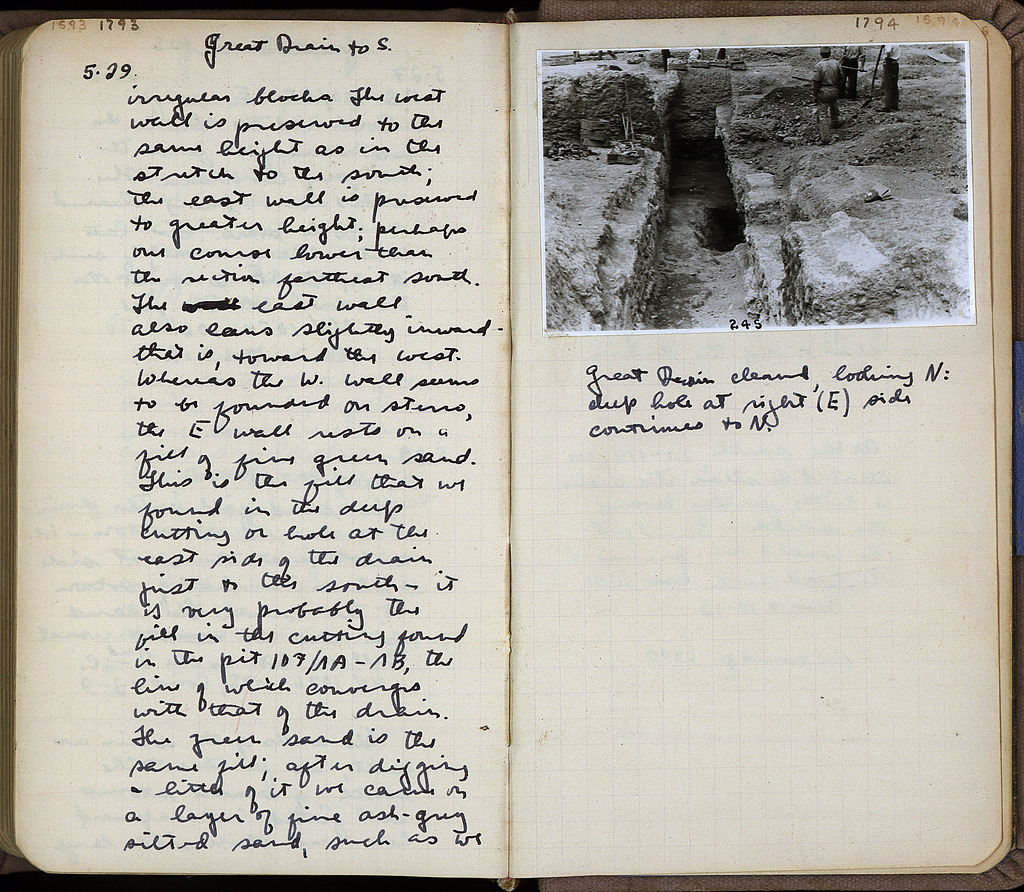 1593 1793
Great Drain to S.
5.29.
irregular blocks The west
wall is preserved to the
same height as in the
stretch to the south;
the east wall is preserved
to greater height; perhaps
one course lower than
the section farthest south.
The east wall
also leans slightly inward -
that is, toward the west.
Whereas the W. wall seems
to be founded on stereo,
the E wall rests on a
fill of fine green sand.
This is the fill that we
found in the deep
cutting or hole at the
east side of the drain
just to the south - it
is very probably the
fill in the cutting found
in the pit 107/ΛΑ - ΛΒ, the
line of which converges
with that of the drain.
The green sand is the
same fill; after digging
a little of it we came on
a layer of fine ash-grey
silted sand, such as we
1794 1594
245
Great Drain cleared, looking N:
deep hole at right (E) side
continues to N.